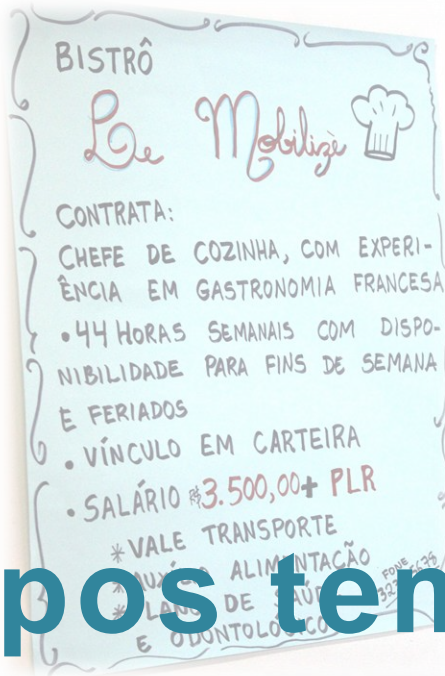 BISTRÔ
Le Mobilizè
CONTRATA:
CHEFE DE COZINHA, COM EXPERI-
ÊNCIA EM GASTRONOMIA FRANCESA
• 44 HORAS SEMANAIS COM DISPO-
NIBILIDADE PARA FINS DE SEMANA
E FERIADOS
• VÍNCULO EM CARTEIRA
• SALÁRIO R$ 3.500,00 + PLR
* VALE TRANSPORTE
ALIMENTAÇÃO
DE
E ODONTOLÓGICO
FONE
pos ten